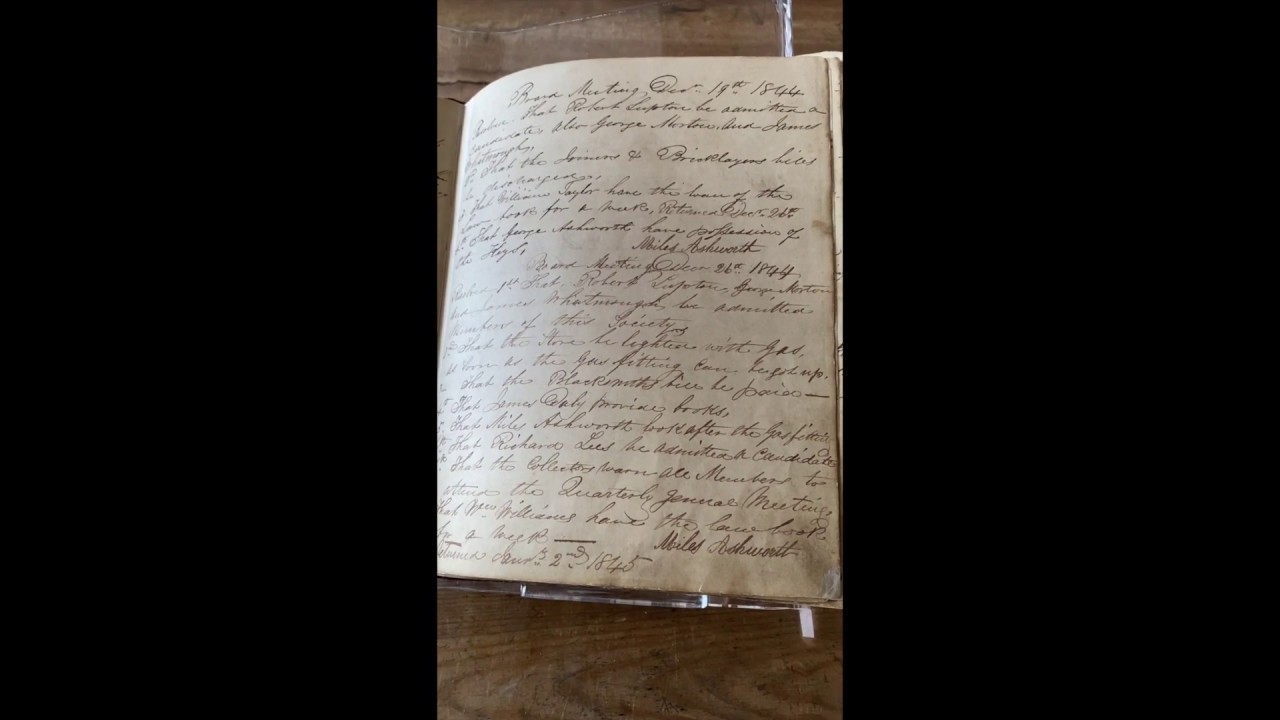 Board Meeting Decr. 19th 1844
That Robert Lupton be admitted a
candidate, also George Morton, and James
Whatmough,
That the Joiners & Bricklayers bills
be discharged,
That William Taylor have the loan of the
Law book for a week, Returned Decr. 26th
That George Ashworth have possession of
the Keys,
Miles Ashworth
Board Meeting Decr 26th 1844
Resolved 1st That, Robert Lupton, George Morton
and James Whatmough, be admitted
Members of this Society,
That the Store be lighted with Gas,
as soon as the Gas fitting can be got up.
That the Blacksmiths bill be paid —
That James Daly provide books,
That Miles Ashworth look after the Gas fitting
That Richard Lees be admitted a Candidate
That the Collectors warn all Members to
attend the Quarterly general Meeting,
that Wm Williams have the law book
for a week —
Miles Ashworth
Returned Jany. 2nd 1845